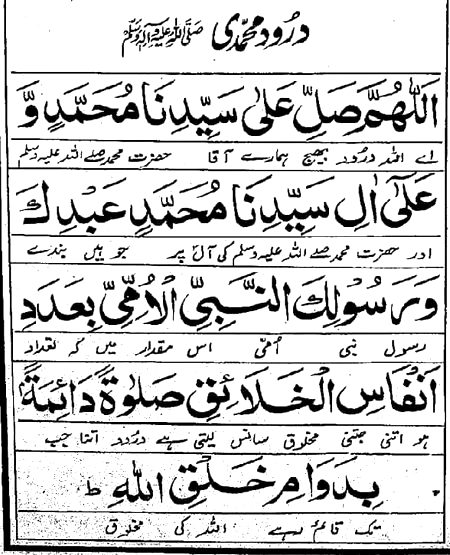 درود محمدی صَلَّی اللّٰہُ عَلَیْہِ وَاٰلِہٖ وَسَلَّمْ
اَللّٰهُمَّ صَلِّ عَلٰی سَیِّدِنَا مُحَمَّدٍ وَّ
اے اللہ درود بھیج ہمارے آقا حضرت محمد صلے اللہ علیہ وسلم
عَلٰۤی اٰلِ سَیِّدِنَا مُحَمَّدٍ عَبْدِكَ
اور حضرت محمد صلے اللہ علیہ وسلم کی آل پر جو ہیں بندے
وَرَسُوْلِكَ النَّبِیِّ الْاُمِّیِّ بِعَدَدِ
رسول نبی اُمّی اس مقدار میں کہ تعداد
اَنْفَاسِ الْخَلَائِقِ صَلٰوةً دَائِمَةً
ہو اتنی جتنی مخلوق سانس لیتی ہے درود اتنا جب
بِدَوَامِ خَلْقِ اللهِ ط
تک قائم ہے اللہ کی مخلوق